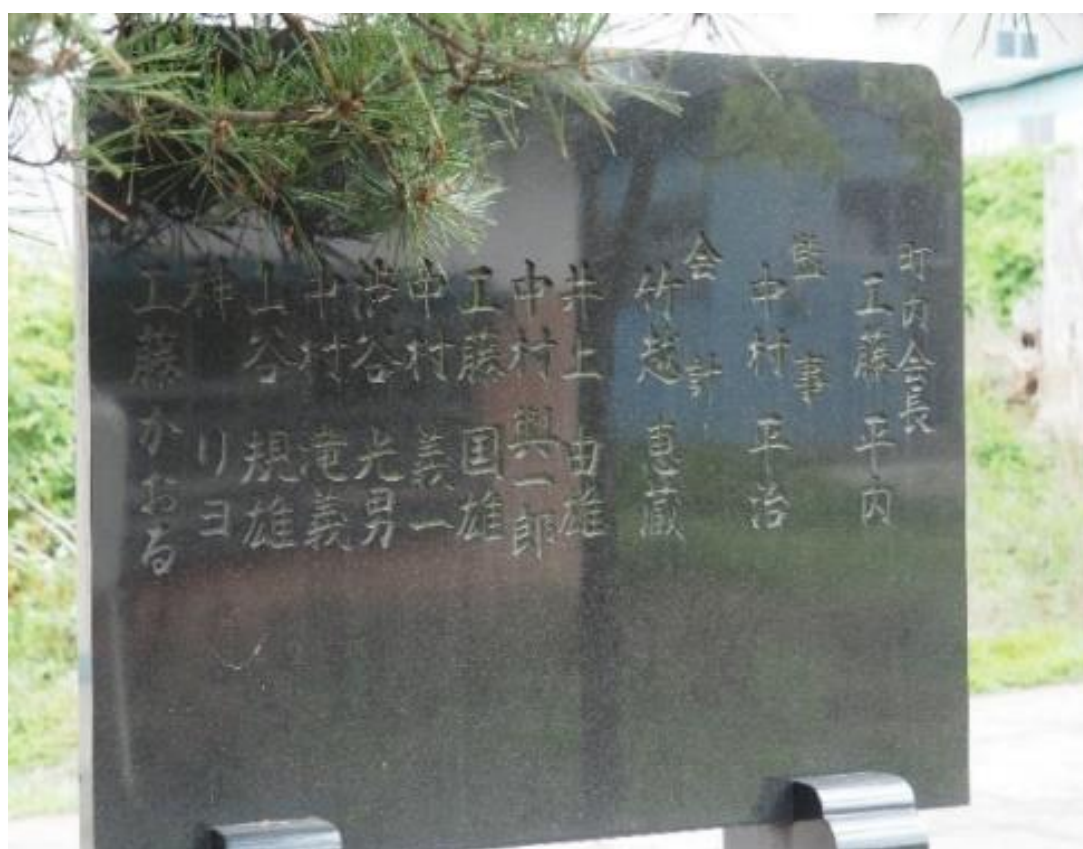 町内会長
工藤 平内
監事
中村 平治
会計
竹越 恵蔵
井上 由雄
中村 與一郎
工藤 国雄
中村 義一
渋谷 光男
中村 滝義
山谷 規雄
リヨ
工藤 かおる